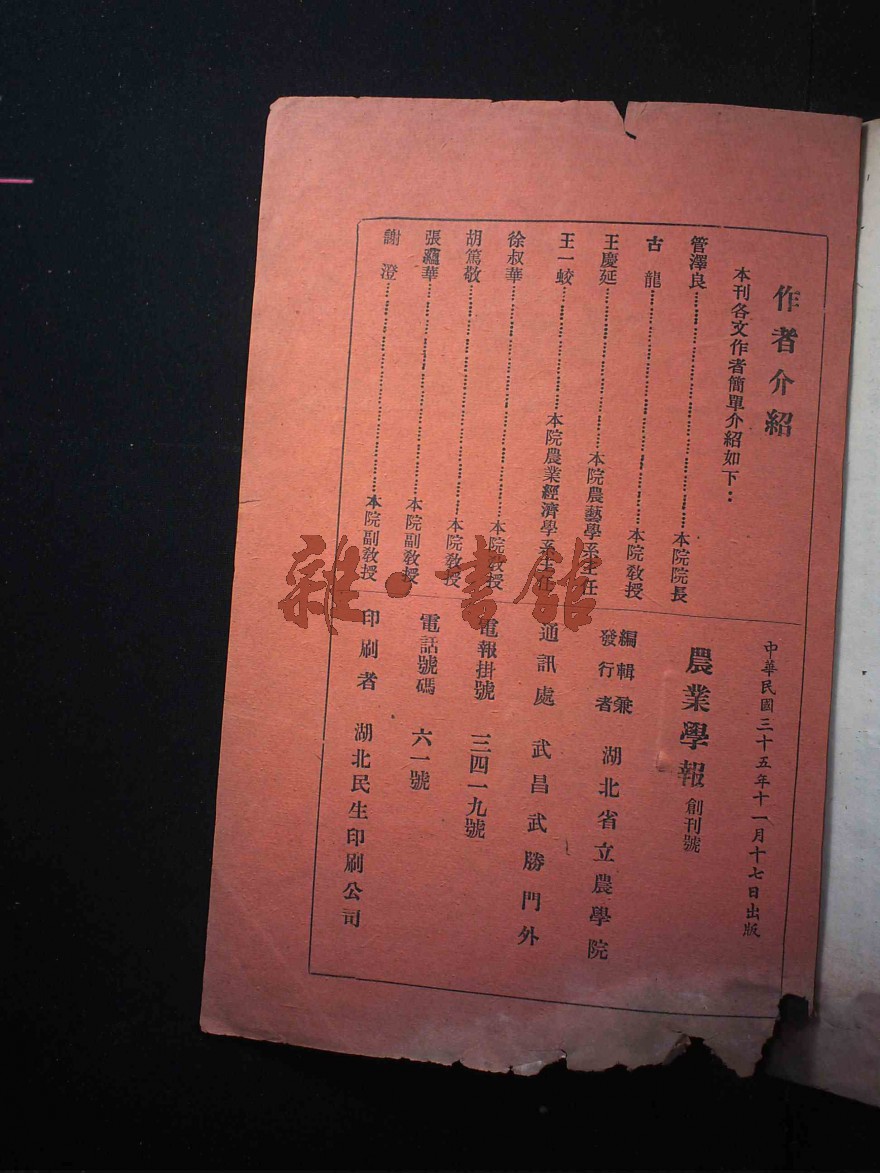 作者介紹
本刊各文作者簡單介紹如下：
管澤良……………………本院院長
古　龍……………………本院教授
王慶延……………………本院農藝學系主任
王一蛟……………………本院農業經濟學系主任
徐叔華……………………本院教授
胡篤敬……………………本院教授
張蘊華……………………本院副教授
謝　澄……………………本院副教授
中華民國三十五年十一月十七日出版
農業學報創刊號
編輯兼發行者　湖北省立農學院
通訊處　武昌武勝門外
電報掛號　三四一九號
電話號碼　六一號
印刷者　湖北民生印刷公司
雜·書館